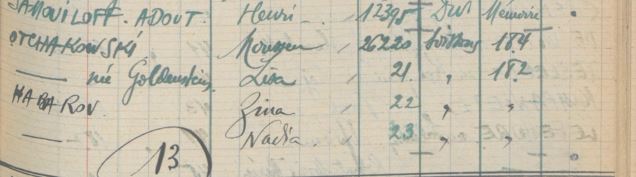 SAMOUILOFF. ADOUT. Henri 12395 Mémorii
OTCHAKOWSKI Moussen, 26220 184
— née Goldenstein. Lisa, 21. " 182
HABAROV. Zina, 22 " "
— Nadia, 23 " "
13